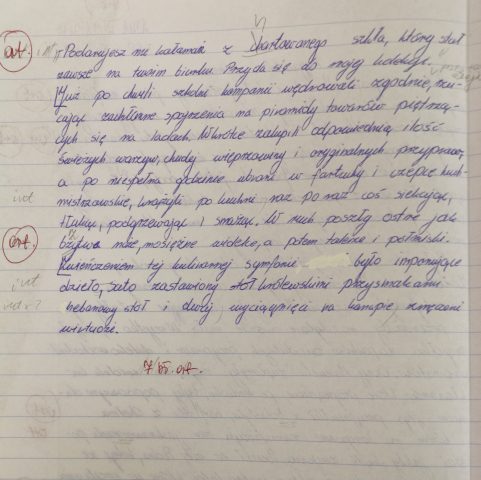 ort. „Podarujesz mi kałamarz z chartowanego szkła, który stał
zawsze na twoim biurku. Przyda się do mojej kolekcji.
Już po chwili szkolni kompani wędrowali zgodnie, rzu-
cając zachłanne spojrzenia na piramidy towarów piętrzą-
cych się na ladach. Wkrótce zakupili odpowiednią ilość
świerzych warzyw, chudej wieprzowiny i oryginalnych przypraw,
a po niespełna godzinie ubrani w fartuchy i czepce kuch-
mistrzowskie, krążyli po kuchni raz po raz coś siekając,
tłukąc, podgrzewając i smażąc. W ruch poszły ostre jak
ort. brzytwa noże, mosiężne widelce, a potem talerze i półmiski.
Zwieńczeniem tej kulinarnej symfonii było imponujące
dzieło, suto zastawiony stół królewskimi przysmakami
hebanowy stół i dwaj, wyciągnięci na kanapie, zmęczeni
wirtuozi.
7 bł. ort.